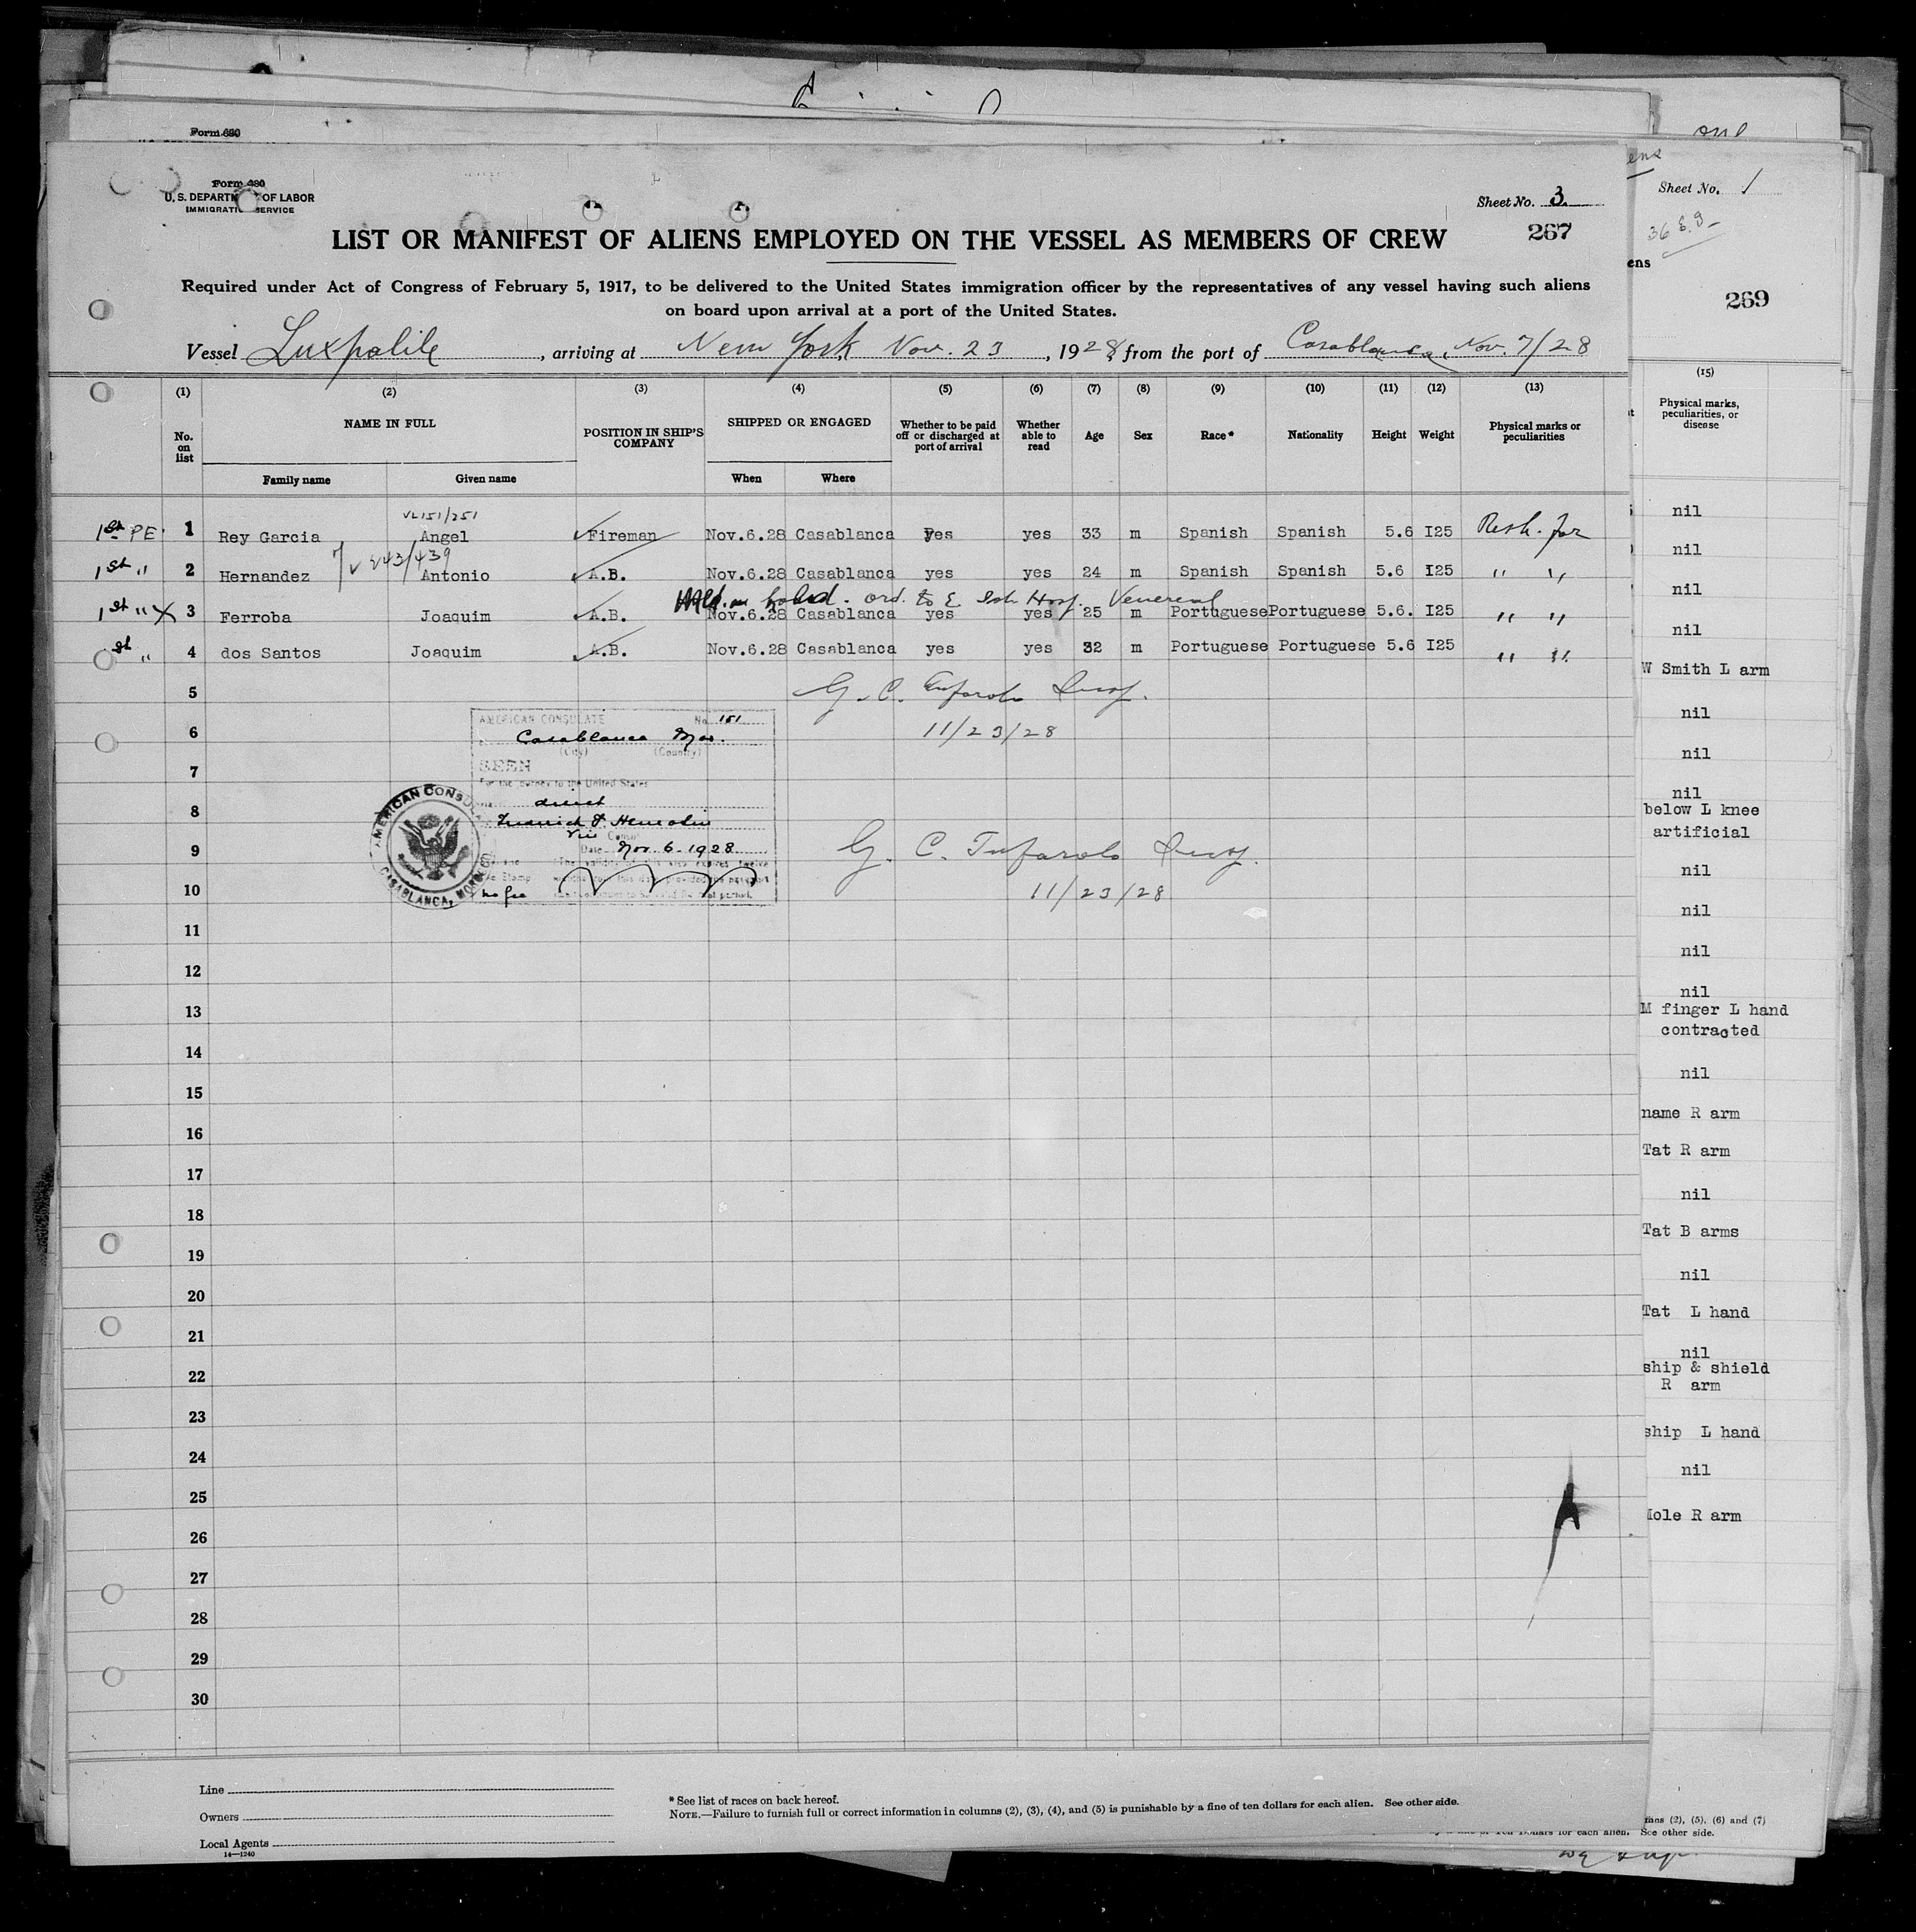 Form 680
Form 680
U. S. DEPARTMENT OF LABOR
IMMIGRATION SERVICE
Sheet No. 3
267
LIST OR MANIFEST OF ALIENS EMPLOYED ON THE VESSEL AS MEMBERS OF CREW
Required under Act of Congress of February 5, 1917, to be delivered to the United States immigration officer by the representatives of any vessel having such aliens
on board upon arrival at a port of the United States.
Vessel Luxpalile, arriving at New York Nov. 23, 1928 from the port of Casablanca, Nov. 7/28
(1) (2) (3) (4) (5) (6) (7) (8) (9) (10) (11) (12) (13)
No. on list
NAME IN FULL
Family name Given name
POSITION IN SHIP'S COMPANY
SHIPPED OR ENGAGED
When Where
Whether to be paid off or discharged at port of arrival
Whether able to read
Age
Sex
Race*
Nationality
Height
Weight
Physical marks or peculiarities
VL151/251
1st PE 1 Rey Garcia Angel Fireman Nov.6.28 Casablanca yes yes 33 m Spanish Spanish 5.6 I25
1st " 2 Hernandez Antonio A.B. Nov.6.28 Casablanca yes yes 24 m Spanish Spanish 5.6 I25 " "
ord. to Hosp. Venereal
1st " X 3 Ferroba Joaquim A.B. Nov.6.28 Casablanca yes yes 25 m Portuguese Portuguese 5.6. I25 " "
st " 4 dos Santos Joaquim A.B. Nov.6.28 Casablanca yes yes 32 m Portuguese Portuguese 5.6 I25 " "
5
6
7
8
9
10
11
12
13
14
15
16
17
18
19
20
21
22
23
24
25
26
27
28
29
30
G. C. Insp.
11/23/28
AMERICAN CONSULATE No. 151
Casablanca Mor.
(City) (Country)
SEEN
For the journey to the United States
direct
Vice Consul
Date Nov. 6. 1928
no fee
AMERICAN CONSUL
CASABLANCA, MOROCCO
G. C. Tufarolo Insp.
11/23/28
Line
Owners
Local Agents
14—1240
* See list of races on back hereof.
NOTE.—Failure to furnish full or correct information in columns (2), (3), (4), and (5) is punishable by a fine of ten dollars for each alien. See other side.
ens
Sheet No. 1
ens
269
(15)
Physical marks, peculiarities, or disease
nil
nil
nil
nil
W Smith L arm
nil
nil
nil
below L knee
artificial
nil
nil
nil
nil
M finger L hand
contracted
nil
name R arm
Tat R arm
nil
Tat B arms
nil
Tat L hand
nil
ship & shield
R arm
ship L hand
nil
Mole R arm
mns (2), (5), (6) and (7)
for each alien. See other side.